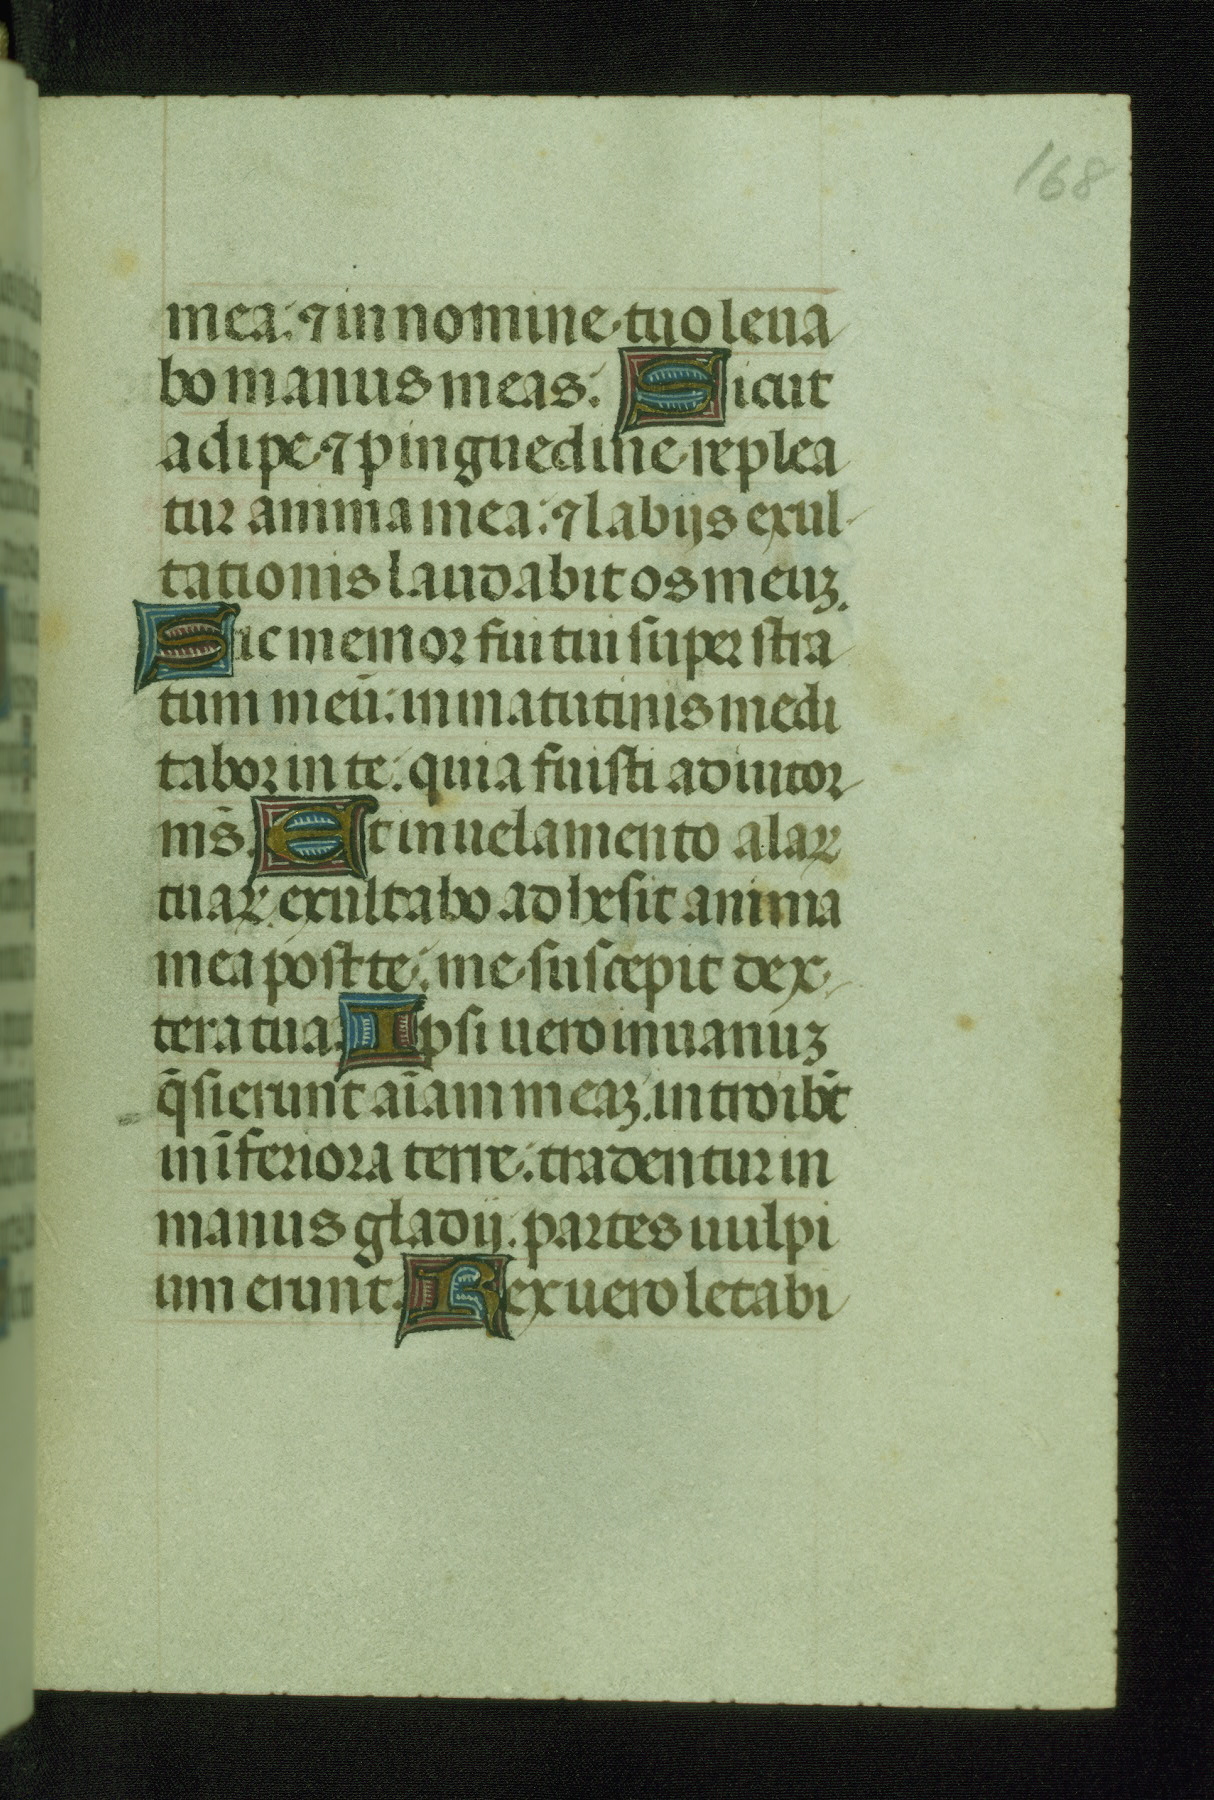 168
mea: ⁊ in nomine tuo leua
bo manus meas. Sicut
adipe ⁊ pinguedine replea
tur anima mea: ⁊ labijs exul
tationis laudabit os meuꝫ.
Sic memor fui tui super stra
tum meū: in matutinis medi
tabor in te: quia fuisti adiutor
ms̄. Et in uelamento alaꝝ
tuaꝝ exultabo adhesit anima
mea post te: me suscepit dex
tera tua. Ipsi uero inuanuꝫ
q̄sierunt aīam meaꝫ. introibt̄
in īferiora terre: tradentur in
manus gladij. partes uulpi
um erunt. Rex uero letabi